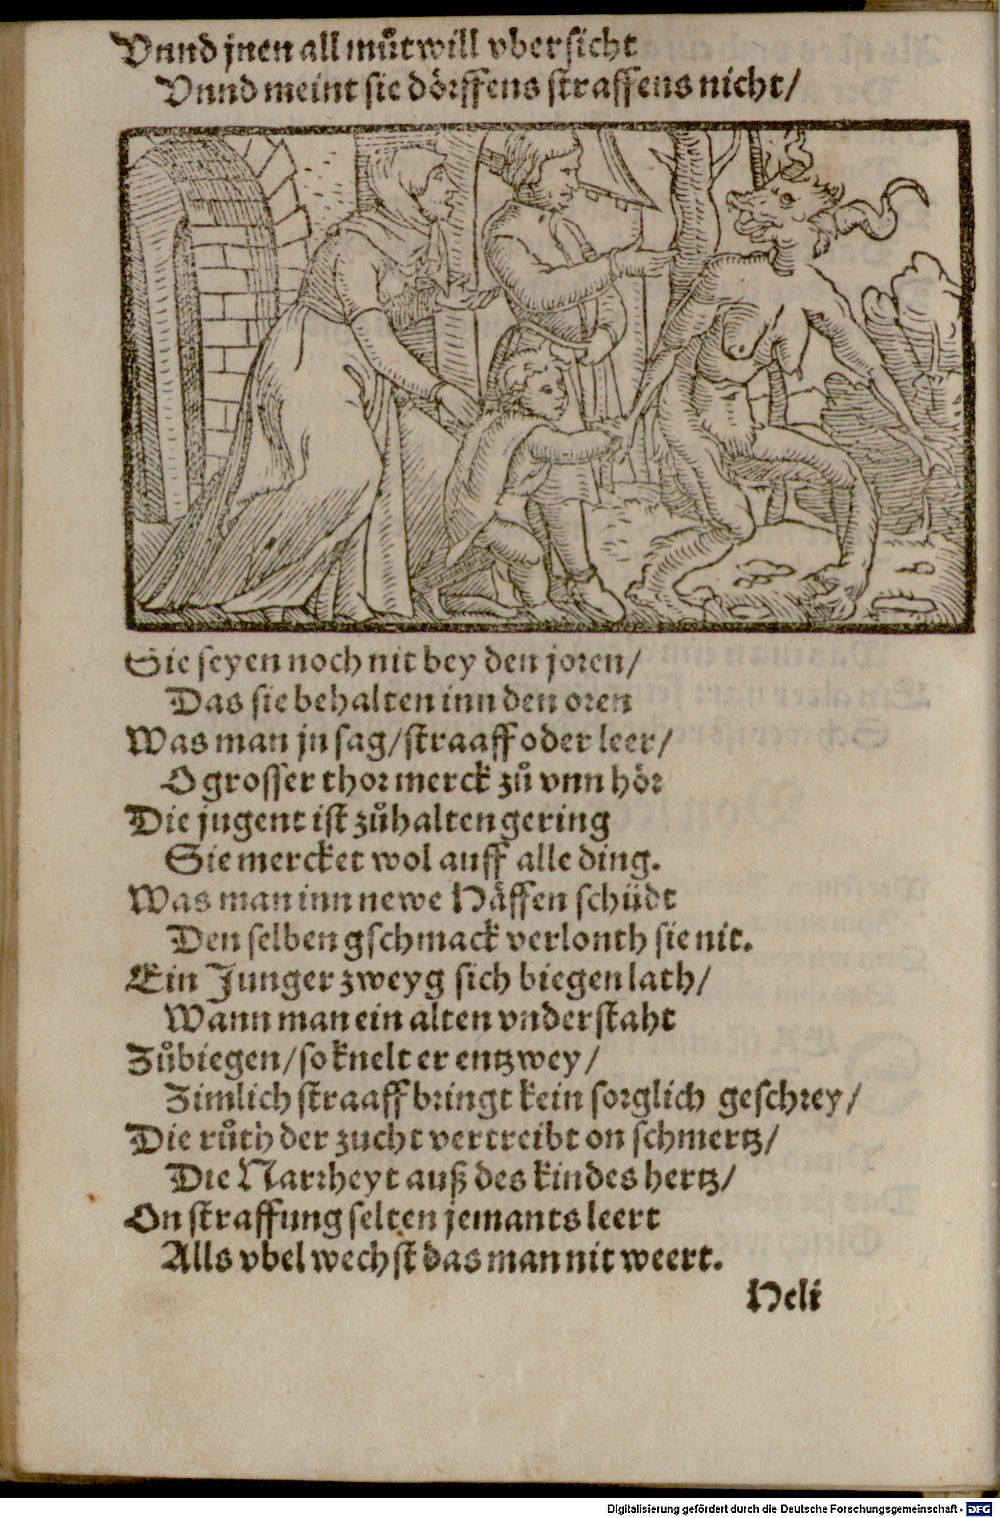 Vnnd jnen all můtwill vbersicht
Vnnd meint sie dörffens straffens nicht/
Sie seyen noch nit bey den joren/
Das sie behalten inn den oren
Was man jn sag/straaff oder leer/
O grosser thor merck zů vnn hör
Die jugent ist zůhalten gering
Sie mercket wol auff alle ding.
Was man inn newe Häffen schüdt
Den selben gschmack verlonth sie nit.
Ein Junger zweyg sich biegen lath/
Wann man ein alten vnderstaht
Zůbiegen/so knelt er entzwey/
Zimlich straaff bringt kein sorglich geschrey/
Die růth der zucht vertreibt on schmertz/
Die Narrheyt auß des kindes hertz/
On straffung selten jemants leert
Alls vbel wechst das man nit weert.
Heli
Digitalisierung gefördert durch die Deutsche Forschungsgemeinschaft - DFG